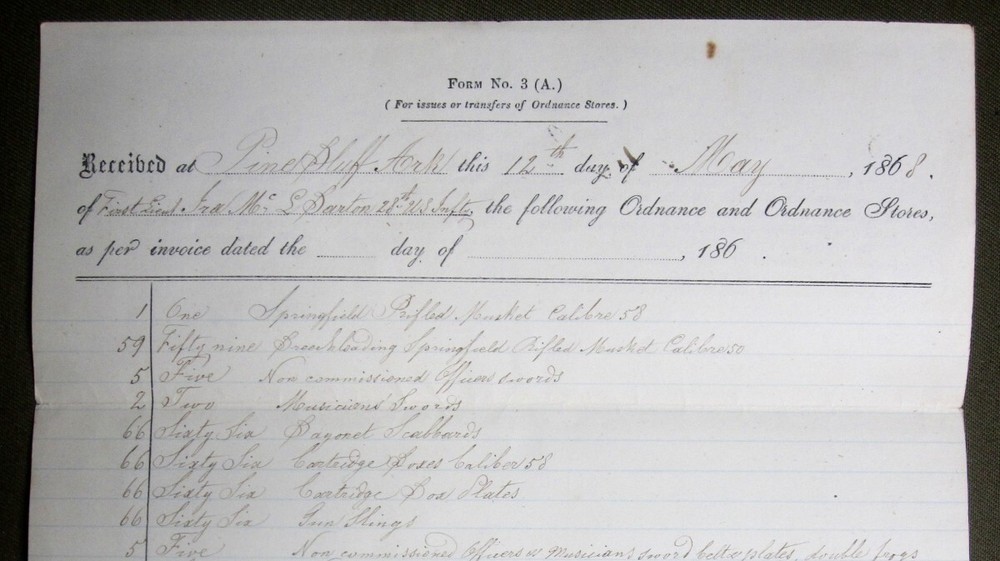 FORM NO. 3 (A.)
( For issues or transfers of Ordnance Stores. )
Received at Pine Bluff Ark this 12th day of May, 1868.
of First Lieut Ira Mc L Barton 28th U S Inft. the following Ordnance and Ordnance Stores,
as per invoice dated the day of , 186 .
1 One Springfield Rifled Musket Calibre 58
59 Fifty nine Breechloading Springfield Rifled Musket Calibre 50
5 Five Non commissioned Officers swords
2 Two Musicians' Swords
66 Sixty Six Bayonet Scabbards
66 Sixty Six Cartridge Boxes Caliber 58
66 Sixty Six Cartridge Box Plates
66 Sixty Six Gun Slings
5 Five Non commissioned Officers & Musicians sword belt & plates, double frogs